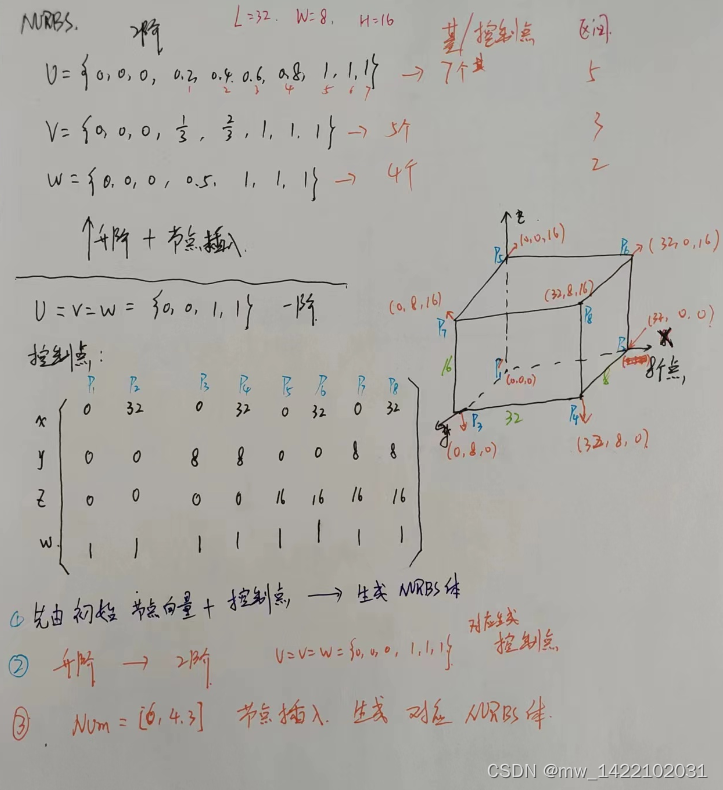 NURBS. 2阶 L=32. W=8. H=16
基/控制点 区间
U={0, 0, 0, 0.2, 0.4, 0.6, 0.8, 1, 1, 1} → 7个基 5
1 2 3 4 5 6 7
V={0, 0, 0, 1/3, 2/3, 1, 1, 1} → 5个 3
W={0, 0, 0, 0.5, 1, 1, 1} → 4个 2
↑升阶 + 节点插入.
U=V=W= {0, 0, 1, 1} 一阶
控制点:
P1 P2 P3 P4 P5 P6 P7 P8
x 0 32 0 32 0 32 0 32
y 0 0 8 8 0 0 8 8
z 0 0 0 0 16 16 16 16
w. 1 1 1 1 1 1 1 1
z
P5 (0,0,16) P6 (32,0,16)
(0,8,16) P7 (32,8,16) P8
(32,0,0)
16 P1 (0,0,0) P2 x
8 8个点,
y P3 32 P4
(0,8,0) (32,8,0)
① 先由初始 节点向量 + 控制点, → 生成 NURBS体
② 升阶 → 2阶 U=V=W={0,0,0, 1,1,1} 对应生成 控制点
③ Num=[6,4,3] 节点插入. 生成 对应 NURBS体.
CSDN @mw_1422102031